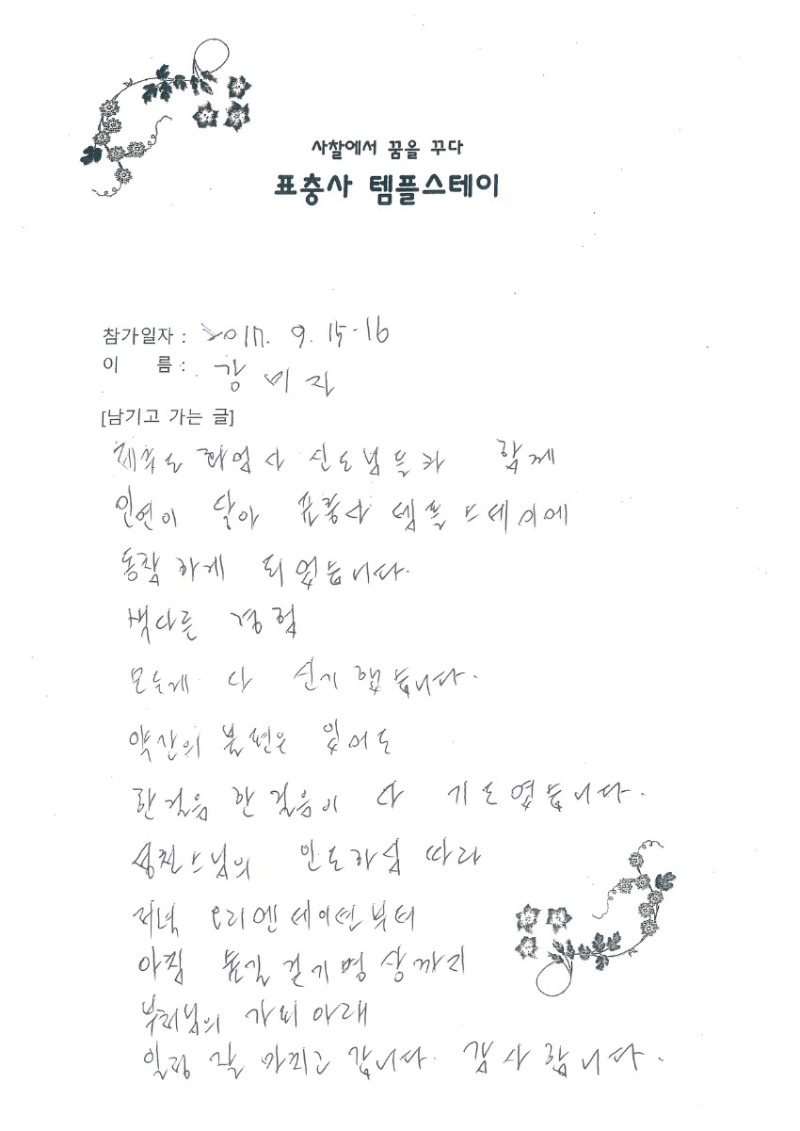 사찰에서 꿈을 꾸다
표충사 템플스테이
참가일자 : 2017. 9. 15-16
이 름 : 강미자
[남기고 가는 글]
제주도 화엄사 신도님들과 함께
인연이 닿아 표충사 템플스테이에
동참하게 되었습니다.
색다른 경험
모든게 다 신기했습니다.
약간의 불편은 있어도
한걸음 한걸음이 다 기도였습니다.
스님의 인도하심 따라
저녁 오리엔테이션부터
아침 숲길 걷기명상까지
부처님의 가피아래
일정 잘 마치고 갑니다. 감사합니다.